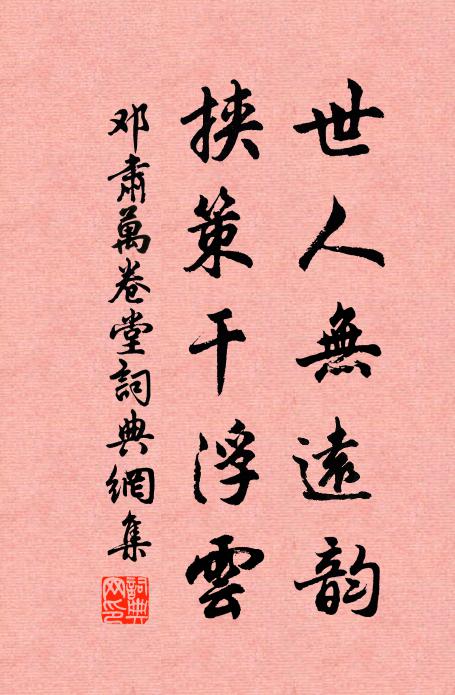 世人無遠韵
挾策干浮雲
邓肅萬卷堂詞典網集
詞典網印